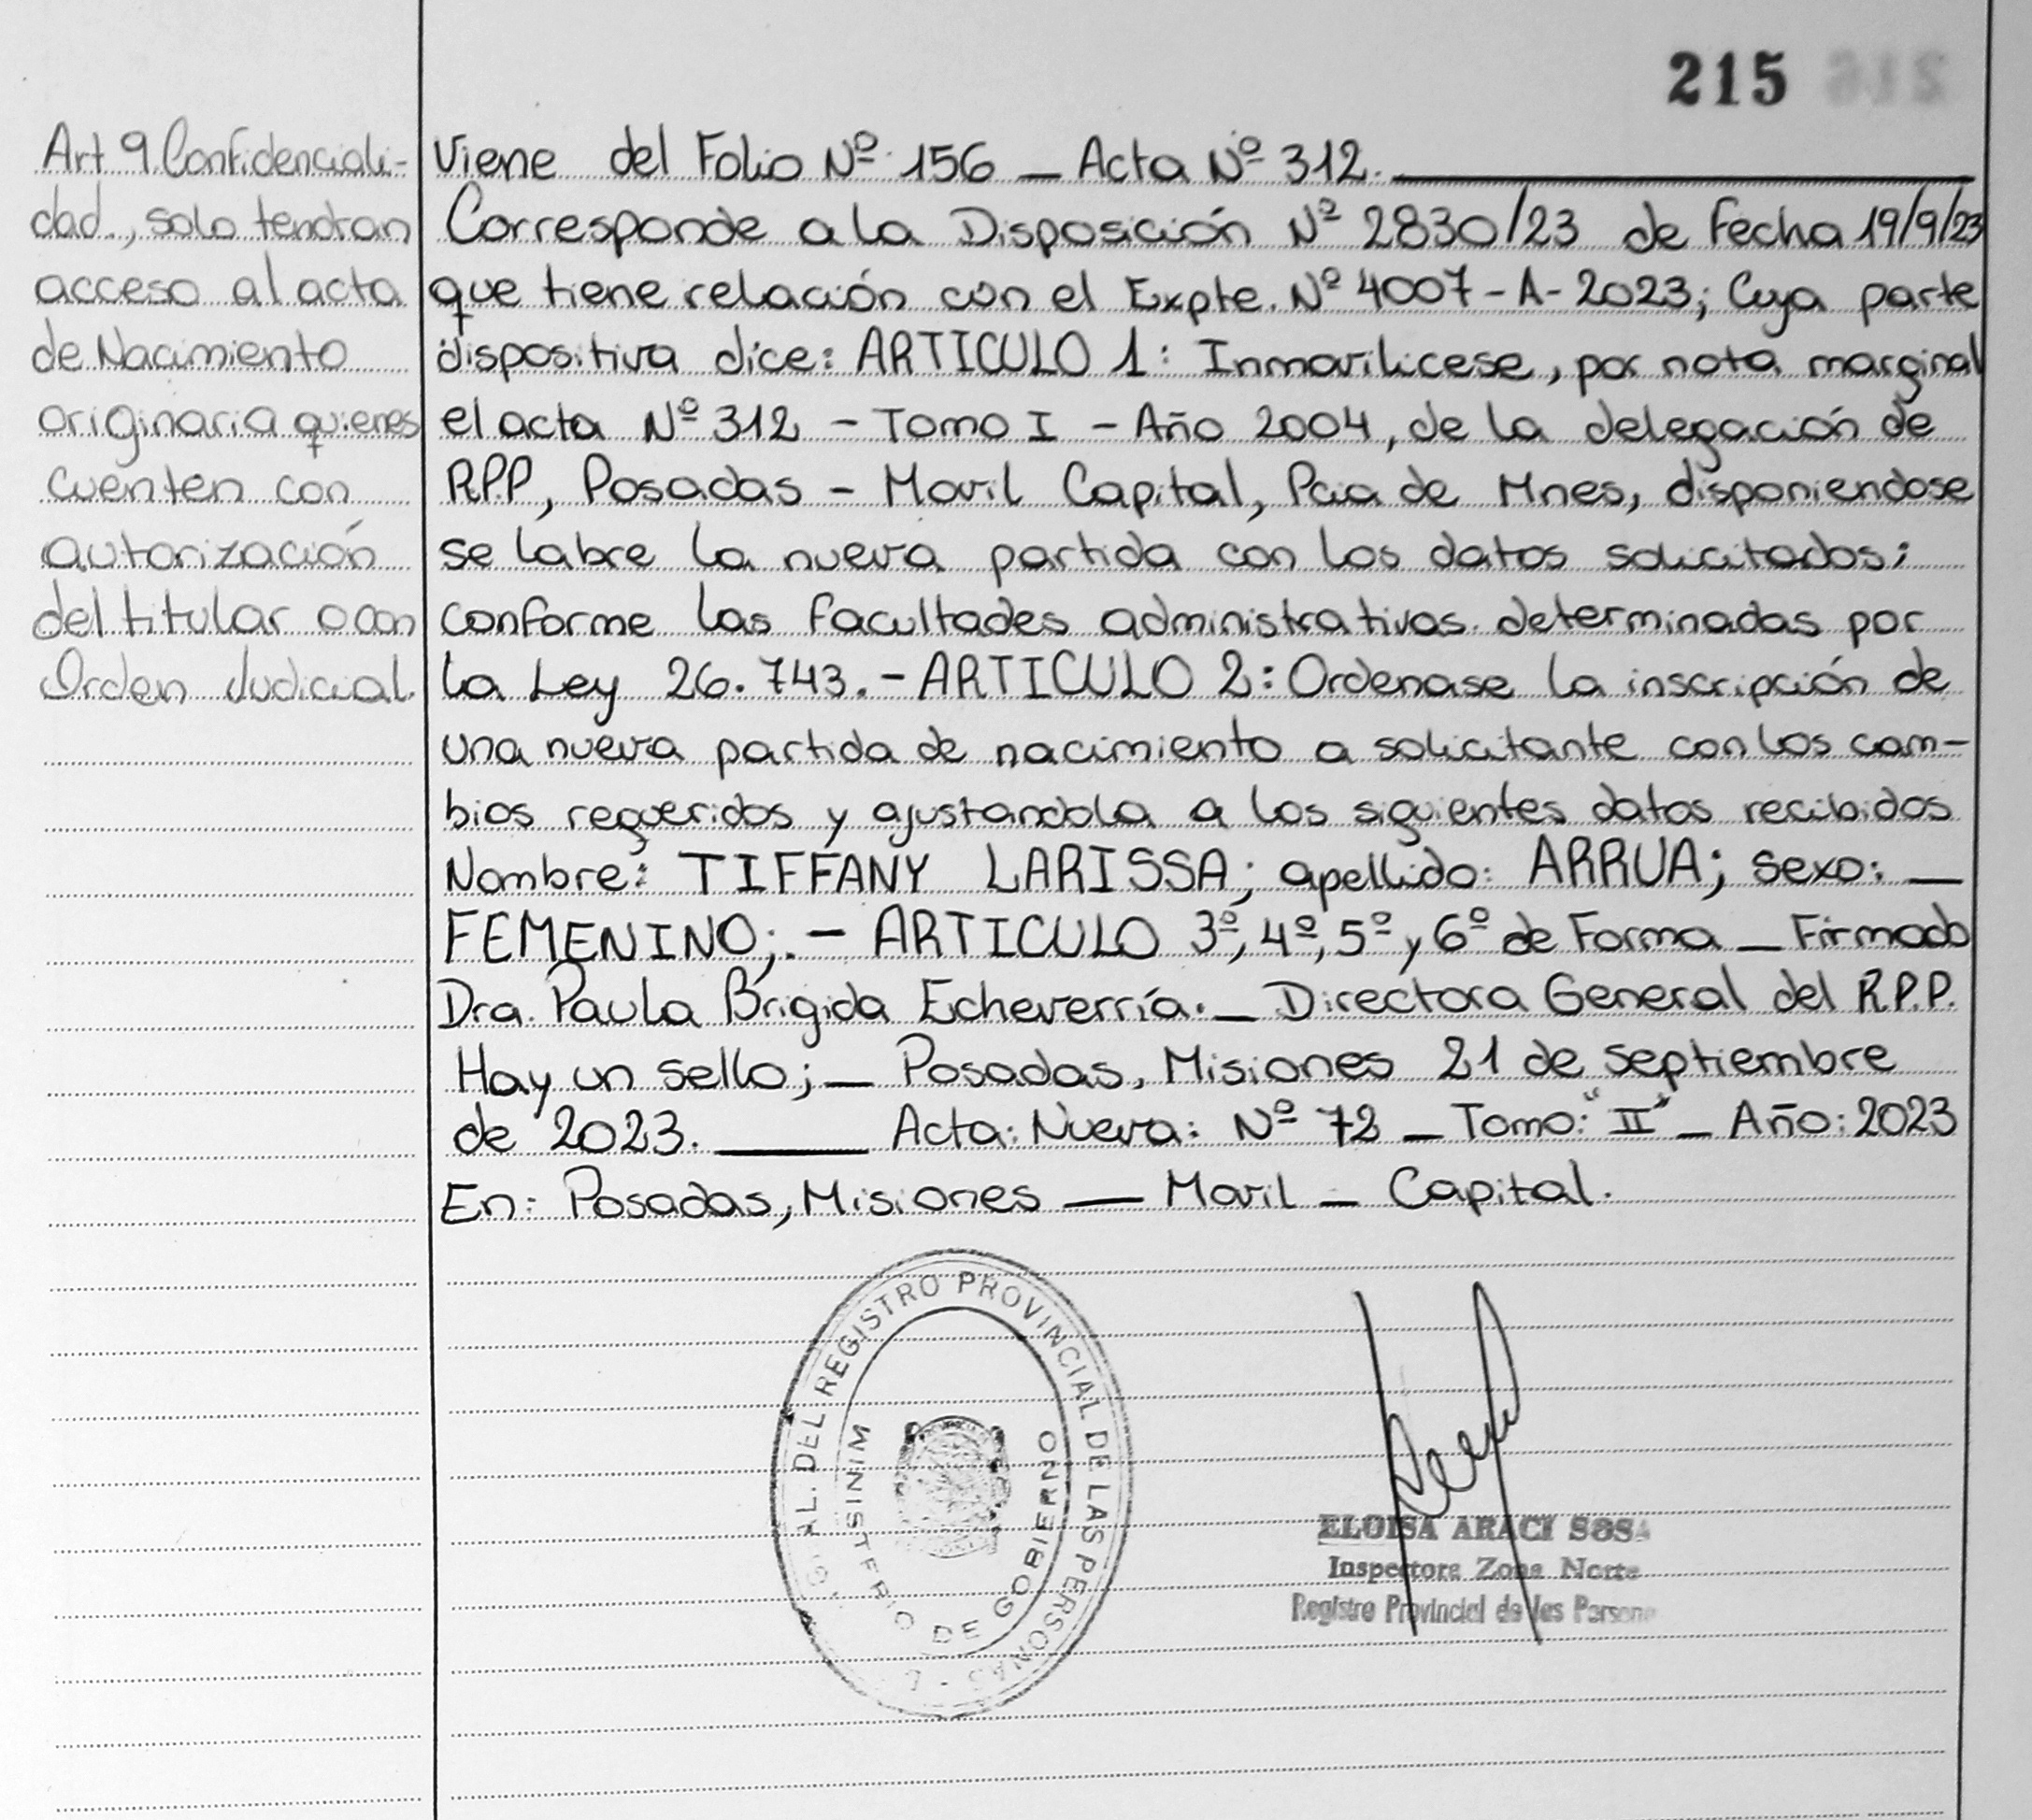 215
Art 9. Confidenciali-
dad., solo tendran
acceso al acta
de Nacimiento
originaria quienes
cuenten con
autorización
del titular o con
Orden Judicial.
Viene del Folio Nº 156 _ Acta Nº 312.
Corresponde a la Disposición Nº 2830/23 de Fecha 19/9/23
que tiene relación con el Expte. Nº 4007-A-2023; Cuya parte
dispositiva dice: ARTICULO 1: Inmovilicese, por nota marginal
el acta Nº 312 - Tomo I - Año 2004, de la delegación de
RPP, Posadas - Movil Capital, Pcia de Mnes, disponiendose
se labre la nueva partida con los datos solicitados;
conforme las facultades administrativas determinadas por
la Ley 26.743. - ARTICULO 2: Ordenase la inscripción de
una nueva partida de nacimiento a solicitante con los cam-
bios requeridos y ajustandola a los siguientes datos recibidos
Nombre: TIFFANY LARISSA; apellido: ARRUA; sexo: _
FEMENINO;. - ARTICULO 3º, 4º, 5º y 6º de Forma _ Firmado
Dra. Paula Brigida Echeverría. _ Directora General del R.P.P.
Hay un sello; _ Posadas, Misiones 21 de septiembre
de 2023. ___ Acta: Nueva: Nº 72 _ Tomo: "II" _ Año: 2023
En: Posadas, Misiones — Movil _ Capital.
GRAL. DEL REGISTRO PROVINCIAL DE LAS PERSONAS
MINISTERIO DE GOBIERNO
ELOISA ARACI SOSA
Inspectora Zona Norte
Registro Provincial de las Persona